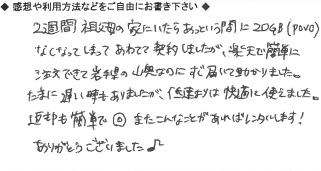 ◆ 感想や利用方法などをご自由にお書き下さい ◆
2週間 祖母の家にいたら あっという間に 20GB (povo)
なくなってしまって あわてて 契約しましたが、楽天で簡単に
注文できて 岩手の山奥なのに すぐ届いて助かりました。
たまに 遅い時もありましたが、低速よりは 快適に使えました。
返却も 簡単で ◎ またこんなことがあればレンタルします!
ありがとうございました♪